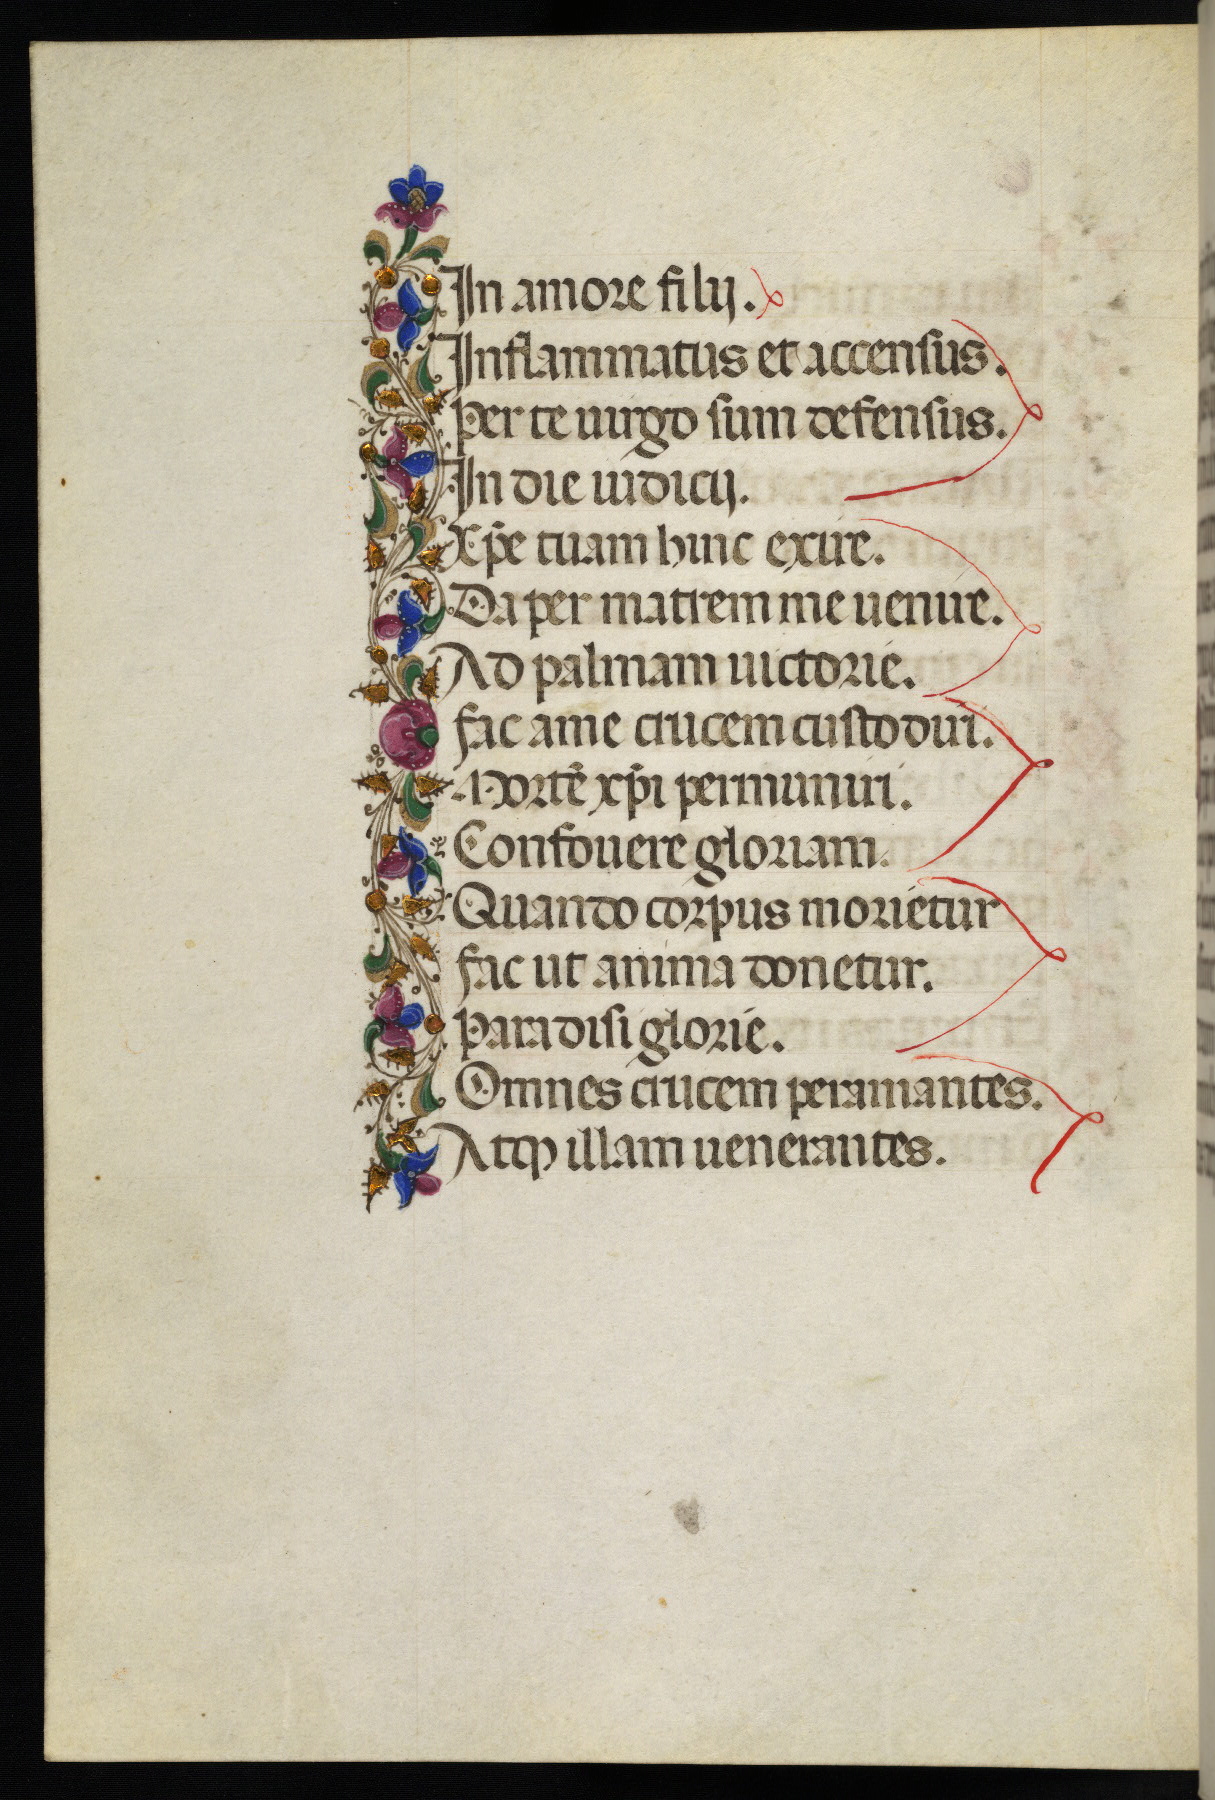 In amore filij.
Inflammatus et accensus.
Per te uirgo sum defensus.
In die iudicij.
Xp̄e cuam hinc exire.
Da per matrem me uenire.
Ad palmam uictorie.
fac a me crucem custodiri.
Mortē xp̄i permuniri.
Confouere gloriam.
Quando corpus morietur
fac ut anima donetur.
Paradisi glorie.
Omnes crucem peramantes.
Atqꝫ illam uenerantes.